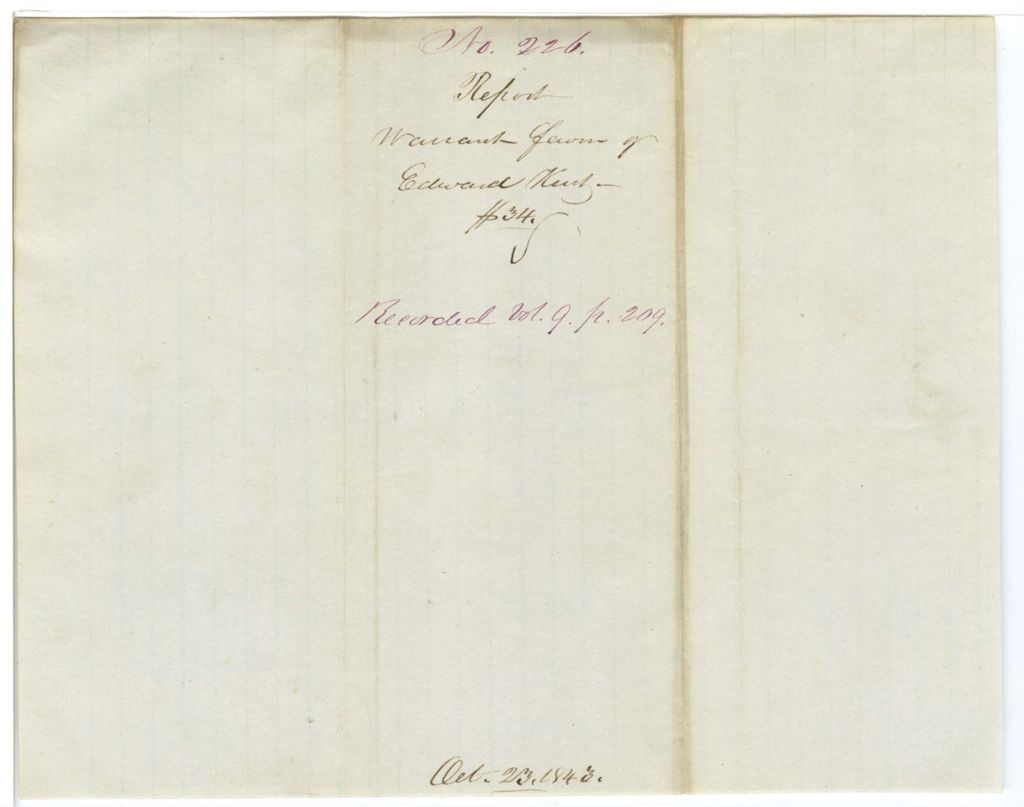 No. 226.
Report
Warrant favor of
Edward Kent —
$34.
Recorded Vol. 9. p. 209.
Oct. 23. 1843.